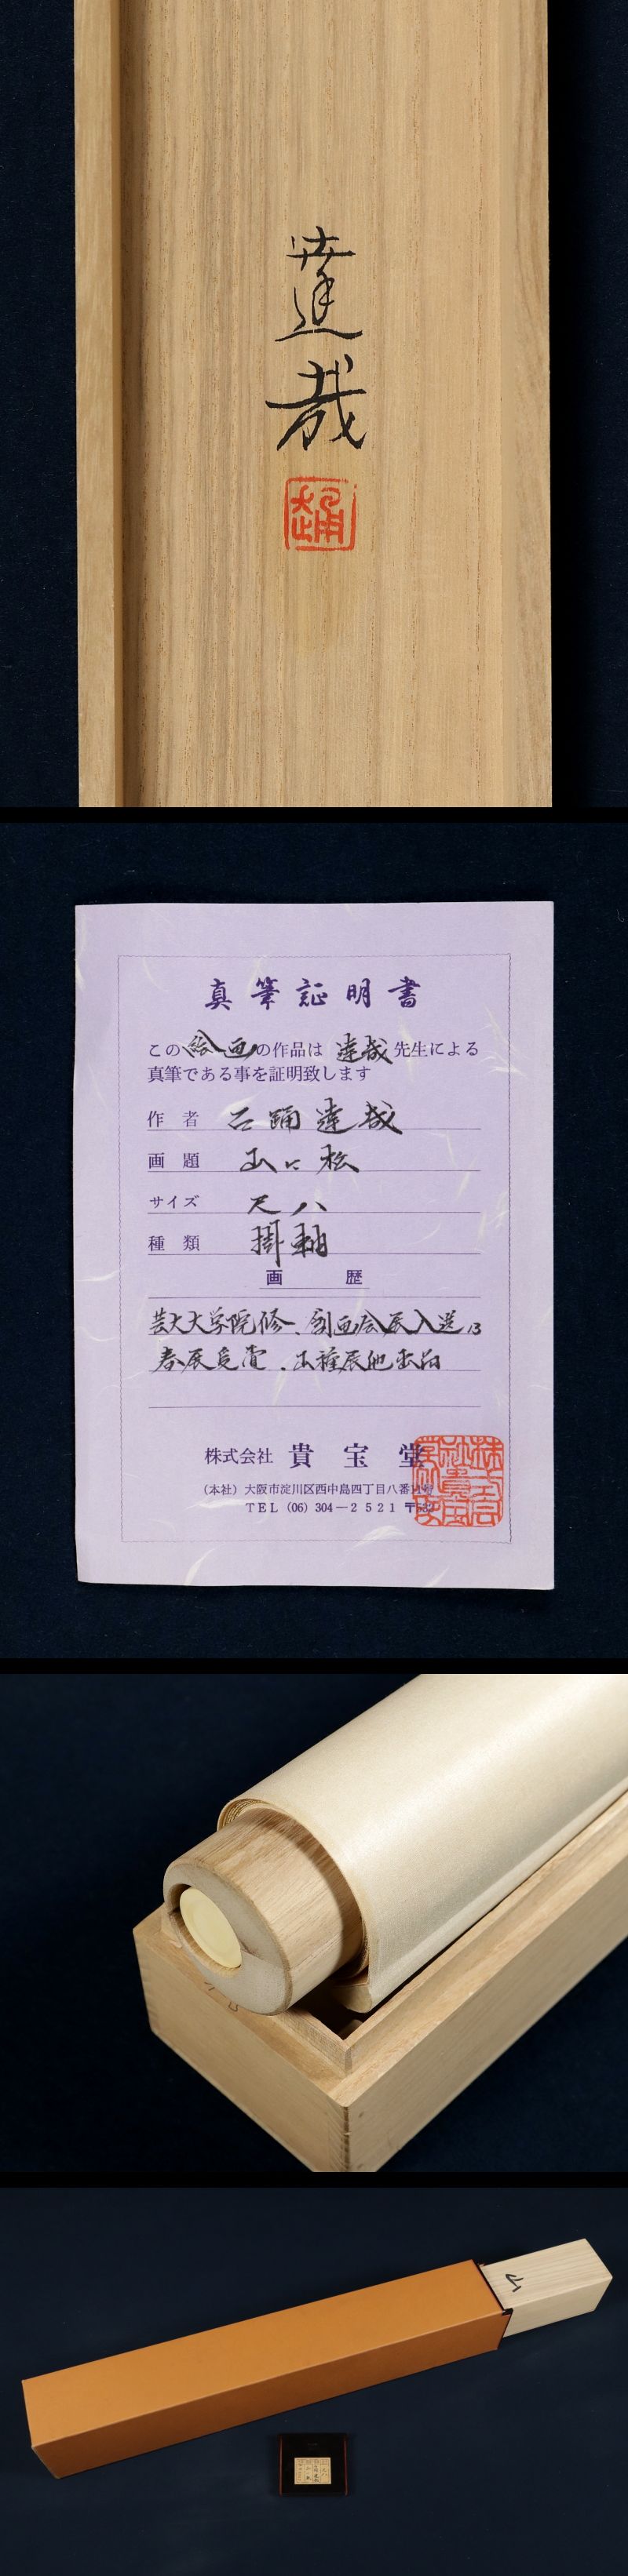 達哉
真筆証明書
この絵画の作品は 達哉 先生による
真筆である事を証明致します
作者 石踊達哉
画題 山に松
サイズ 尺八
種類 掛軸
画歴
芸大大学院修、創画会展入選13
春展受賞、山種展他出品
株式会社 貴宝堂
(本社) 大阪市淀川区西中島四丁目八番
TEL (06) 304-2521 〒532
山